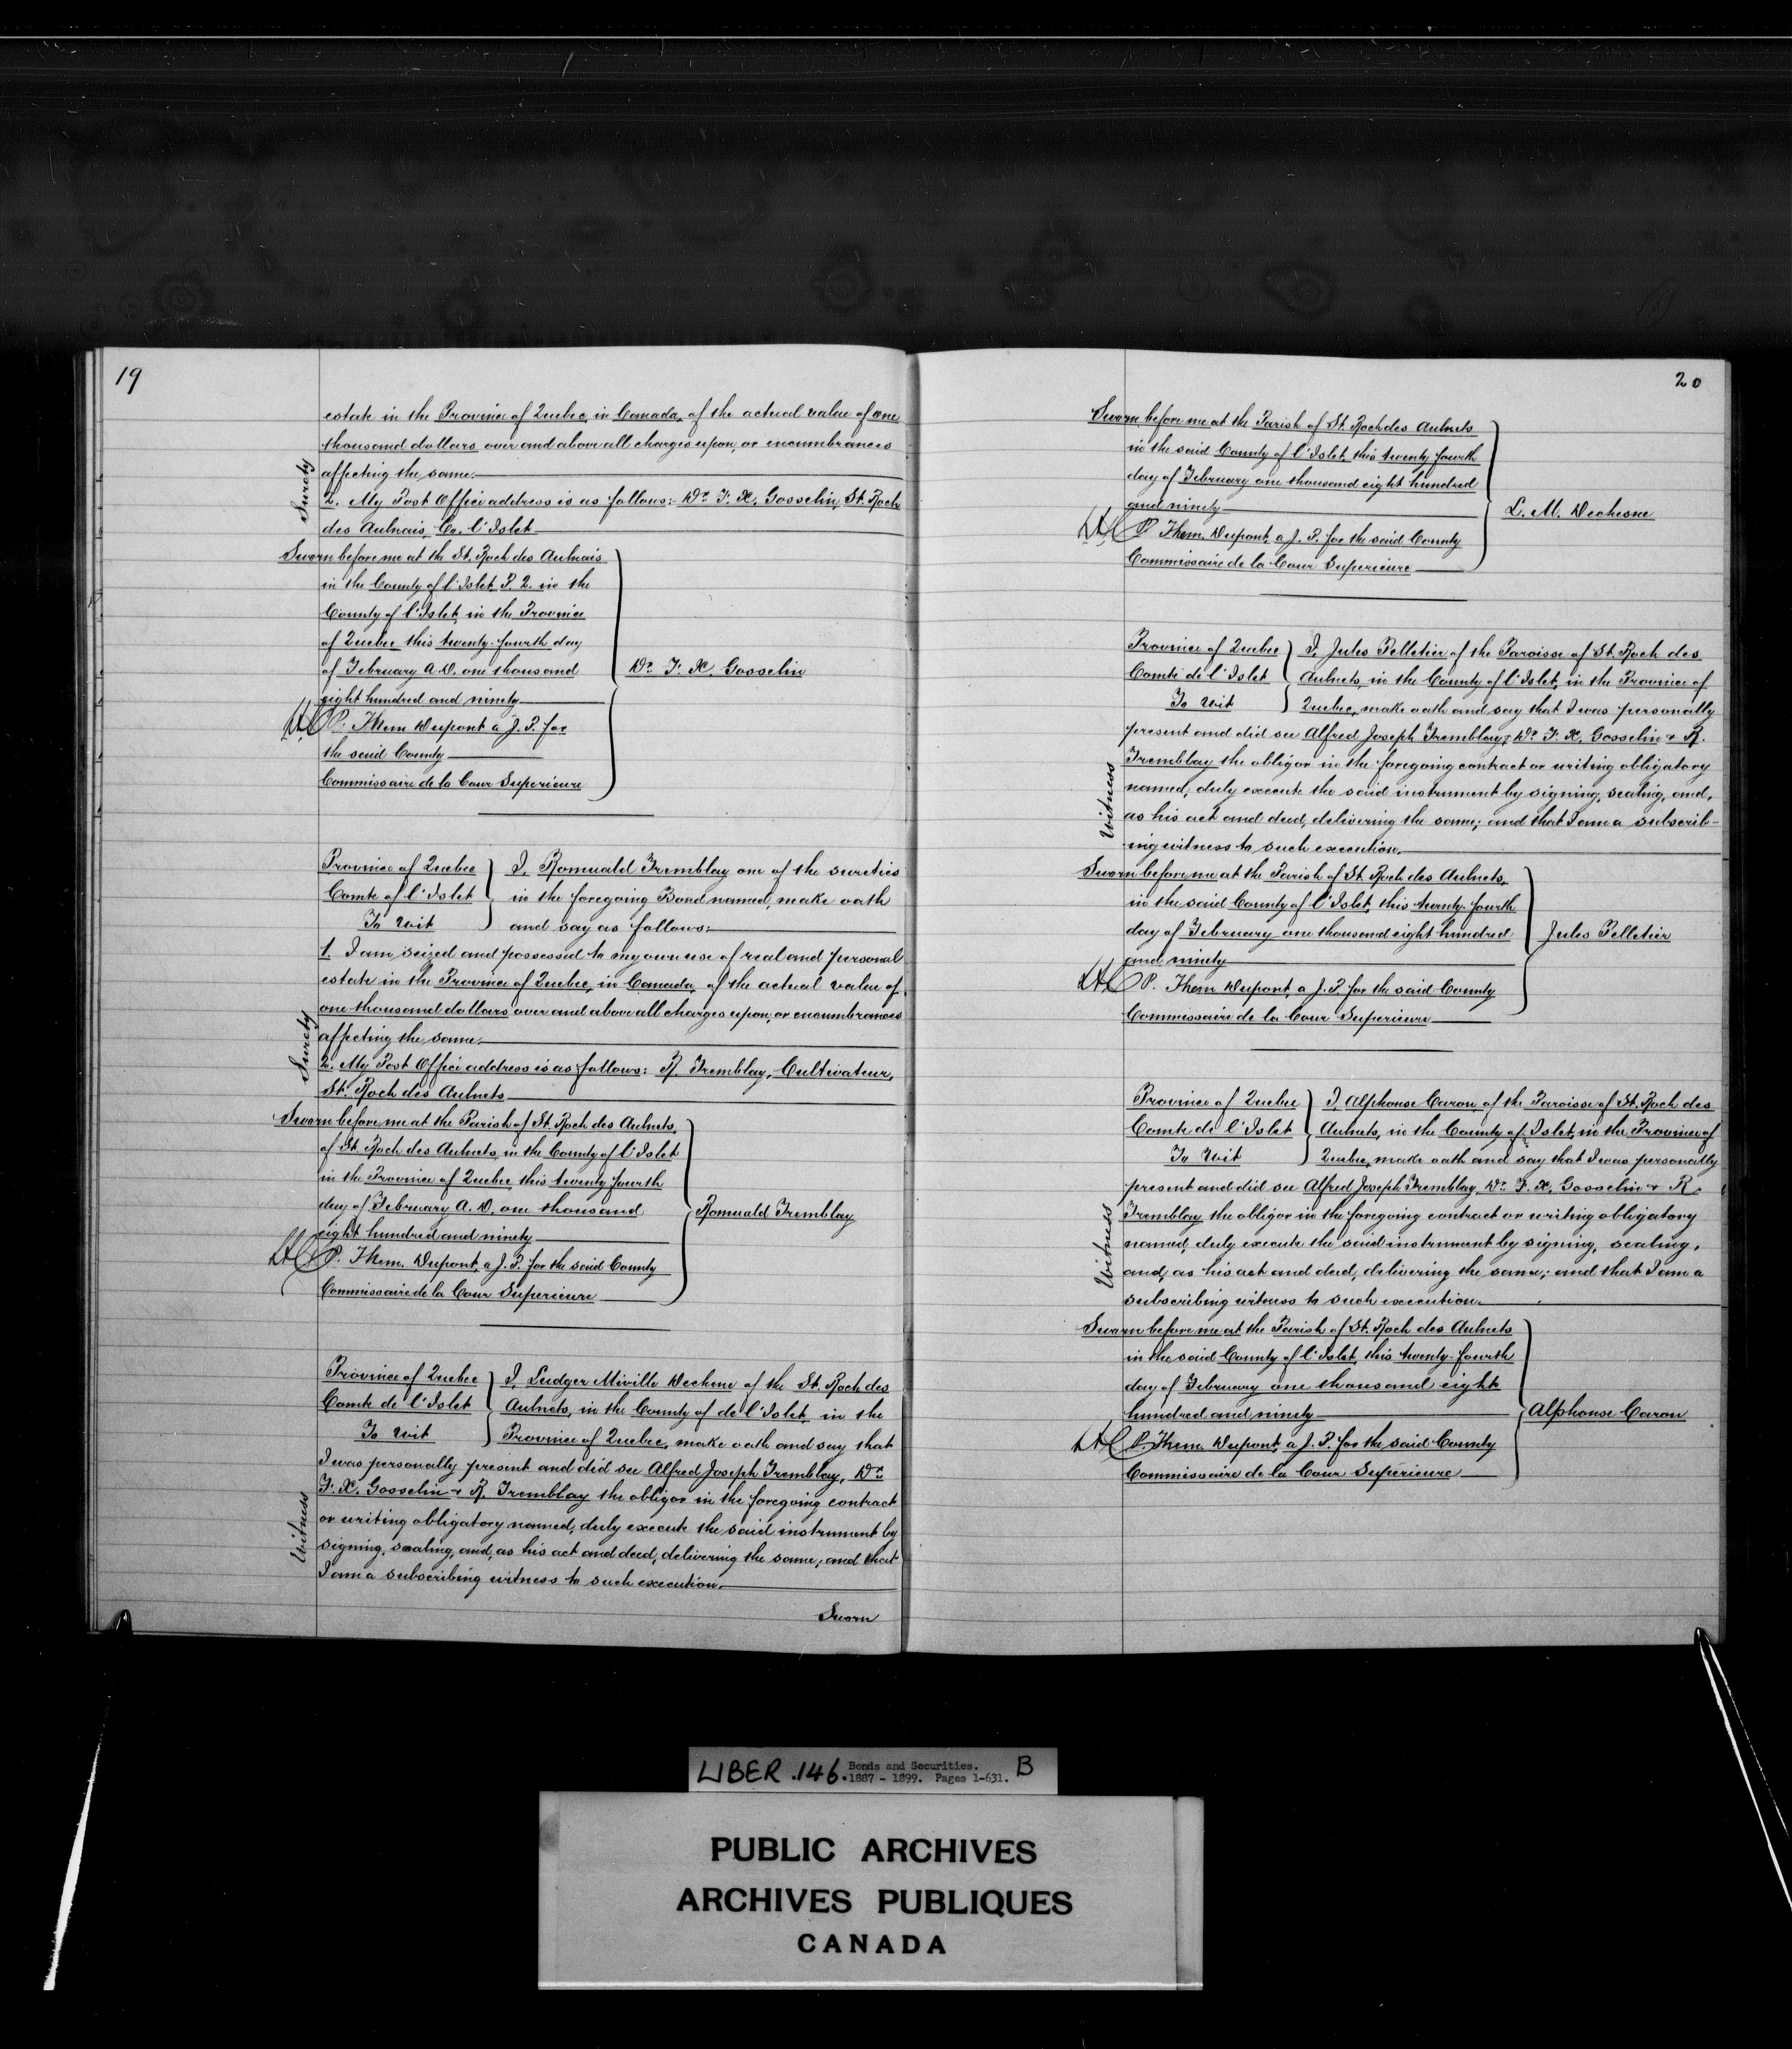 19
estate in the Province of Quebec, in Canada, of the actual value of one
thousand dollars over and above all charges upon, or encumbrances
affecting the same.
Surety
2. My Post Office address is as follows:- Dr. F. X. Gosselin, St. Roch
des Aulnais, Co. l'Islet
Sworn before me at the St. Roch des Aulnais
in the County of l'Islet, P. Q. in the
County of l'Islet, in the Province
of Quebec this twenty-fourth day
of February A.D. one thousand
Dr. F. X. Gosselin
eight hundred and ninety
P. Them Dupont a J. P. for
the said County
Commissaire de la Cour Superieure
Province of Quebec
Comte of l'Islet
To Wit
I, Romuald Tremblay one of the sureties
in the foregoing Bond named, make oath
and say as follows:
1. I am seized and possessed to my own use of real and personal
estate in the Province of Quebec, in Canada, of the actual value of
one thousand dollars over and above all charges upon, or encumbrances
affecting the same.
Surety
2. My Post Office address is as follows: R. Tremblay, Cultivateur,
St. Roch des Aulnets
Sworn before me at the Parish of St. Roch des Aulnets,
of St. Roch des Aulnets, in the County of l'Islet
in the Province of Quebec, this twenty fourth
day of February A. D. one thousand
Romuald Tremblay
eight hundred and ninety
P. Them. Dupont, a J. P. for the said County
Commissaire de la Cour Superieure
Province of Quebec
Comte de l'Islet
To Wit
I, Ludger Miville Dechene of the St. Roch des
Aulnets, in the County of de l'Islet, in the
Province of Quebec, make oath and say that
I was personally present and did see Alfred Joseph Tremblay, Dr.
F. X. Gosselin & R. Tremblay the obligor in the foregoing contract
or writing obligatory named, duly execute the said instrument by
Witness
signing, sealing, and, as his act and deed, delivering the same; and that
I am a subscribing witness to such execution.
Sworn
20
Sworn before me at the Parish of St. Roch des Aulnets
in the said County of l'Islet, this twenty fourth
day of February one thousand eight hundred
and ninety
L. M. Dechesne
P. Them. Dupont, a J. P. for the said County
Commissaire de la Cour Superieure
Province of Quebec
Comte de l'Islet
To Wit
I, Jules Pelletier of the Paroisse of St. Roch des
Aulnets, in the County of l'Islet, in the Province of
Quebec, make oath and say that I was personally
present and did see Alfred Joseph Tremblay, Dr. F. X. Gosselin & R.
Tremblay the obligor in the foregoing contract or writing obligatory
named, duly execute the said instrument by signing, sealing, and,
Witness
as his act and deed, delivering the same; and that I am a subscrib-
ing witness to such execution.
Sworn before me at the Parish of St. Roch des Aulnets,
in the said County of l'Islet, this twenty-fourth
day of February one thousand eight hundred
Jules Pelletier
and ninety
P. Them Dupont, a J. P. for the said County
Commissaire de la Cour Superieure
Province of Quebec
Comte de l'Islet
To Wit
I, Alphonse Caron, of the Paroisse of St. Roch des
Aulnets, in the County of Islet, in the Province of
Quebec, make oath and say that I was personally
present and did see Alfred Joseph Tremblay, Dr. F. X. Gosselin & R.
Tremblay the obligor in the foregoing contract or writing obligatory
named, duly execute the said instrument by signing, sealing,
Witness
and, as his act and deed, delivering the same; and that I am a
subscribing witness to such execution.
Sworn before me at the Parish of St. Roch des Aulnets
in the said County of l'Islet, this twenty-fourth
day of February one thousand eight
hundred and ninety
Alphonse Caron
P. Them. Dupont, a J. P. for the said County
Commissaire de la Cour Superieure
LIBER .146. Bonds and Securities. B
1887 - 1899. Pages 1-631.
PUBLIC ARCHIVES
ARCHIVES PUBLIQUES
CANADA